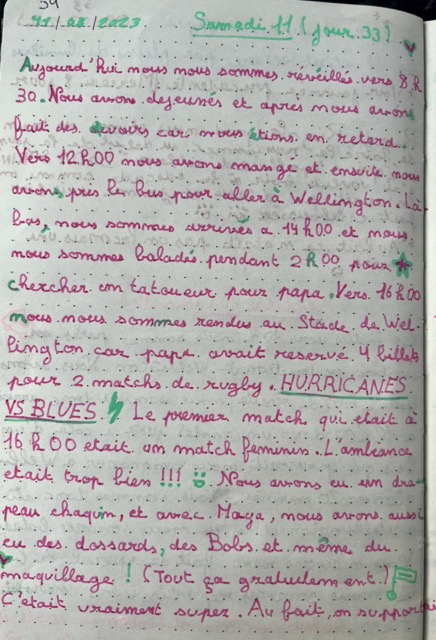 39
11/03/2023 Samedi 11 (jour 33)
Aujourd'hui nous nous sommes réveillés vers 8 h
30. Nous avons dejeunés et après nous avons
fait des devoirs car nous étions en retard.
Vers 12h00 nous avons mangé et ensuite nous
avons pris le bus pour aller à Wellington. Là-
bas, nous sommes arrivés a 14h00 et nous
nous sommes baladés pendant 2h00 pour
chercher un tatoueur pour papa. Vers 16h00
nous nous sommes rendus au Stade de Wel-
lington car papa avait reservé 4 billets
pour 2 matchs de rugby. HURRICANES
VS BLUES Le premier match qui etait à
16h00 etait un match feminin. L'ambiance
etait trop bien !!! Nous avons eu un dra-
peau chaqun, et avec Maya, nous avons aussi
eu des dossards, des Bobs et même du
maquillage ! (Tout ça gratuitement.)
C'était vraiment super. Au fait, on supportai